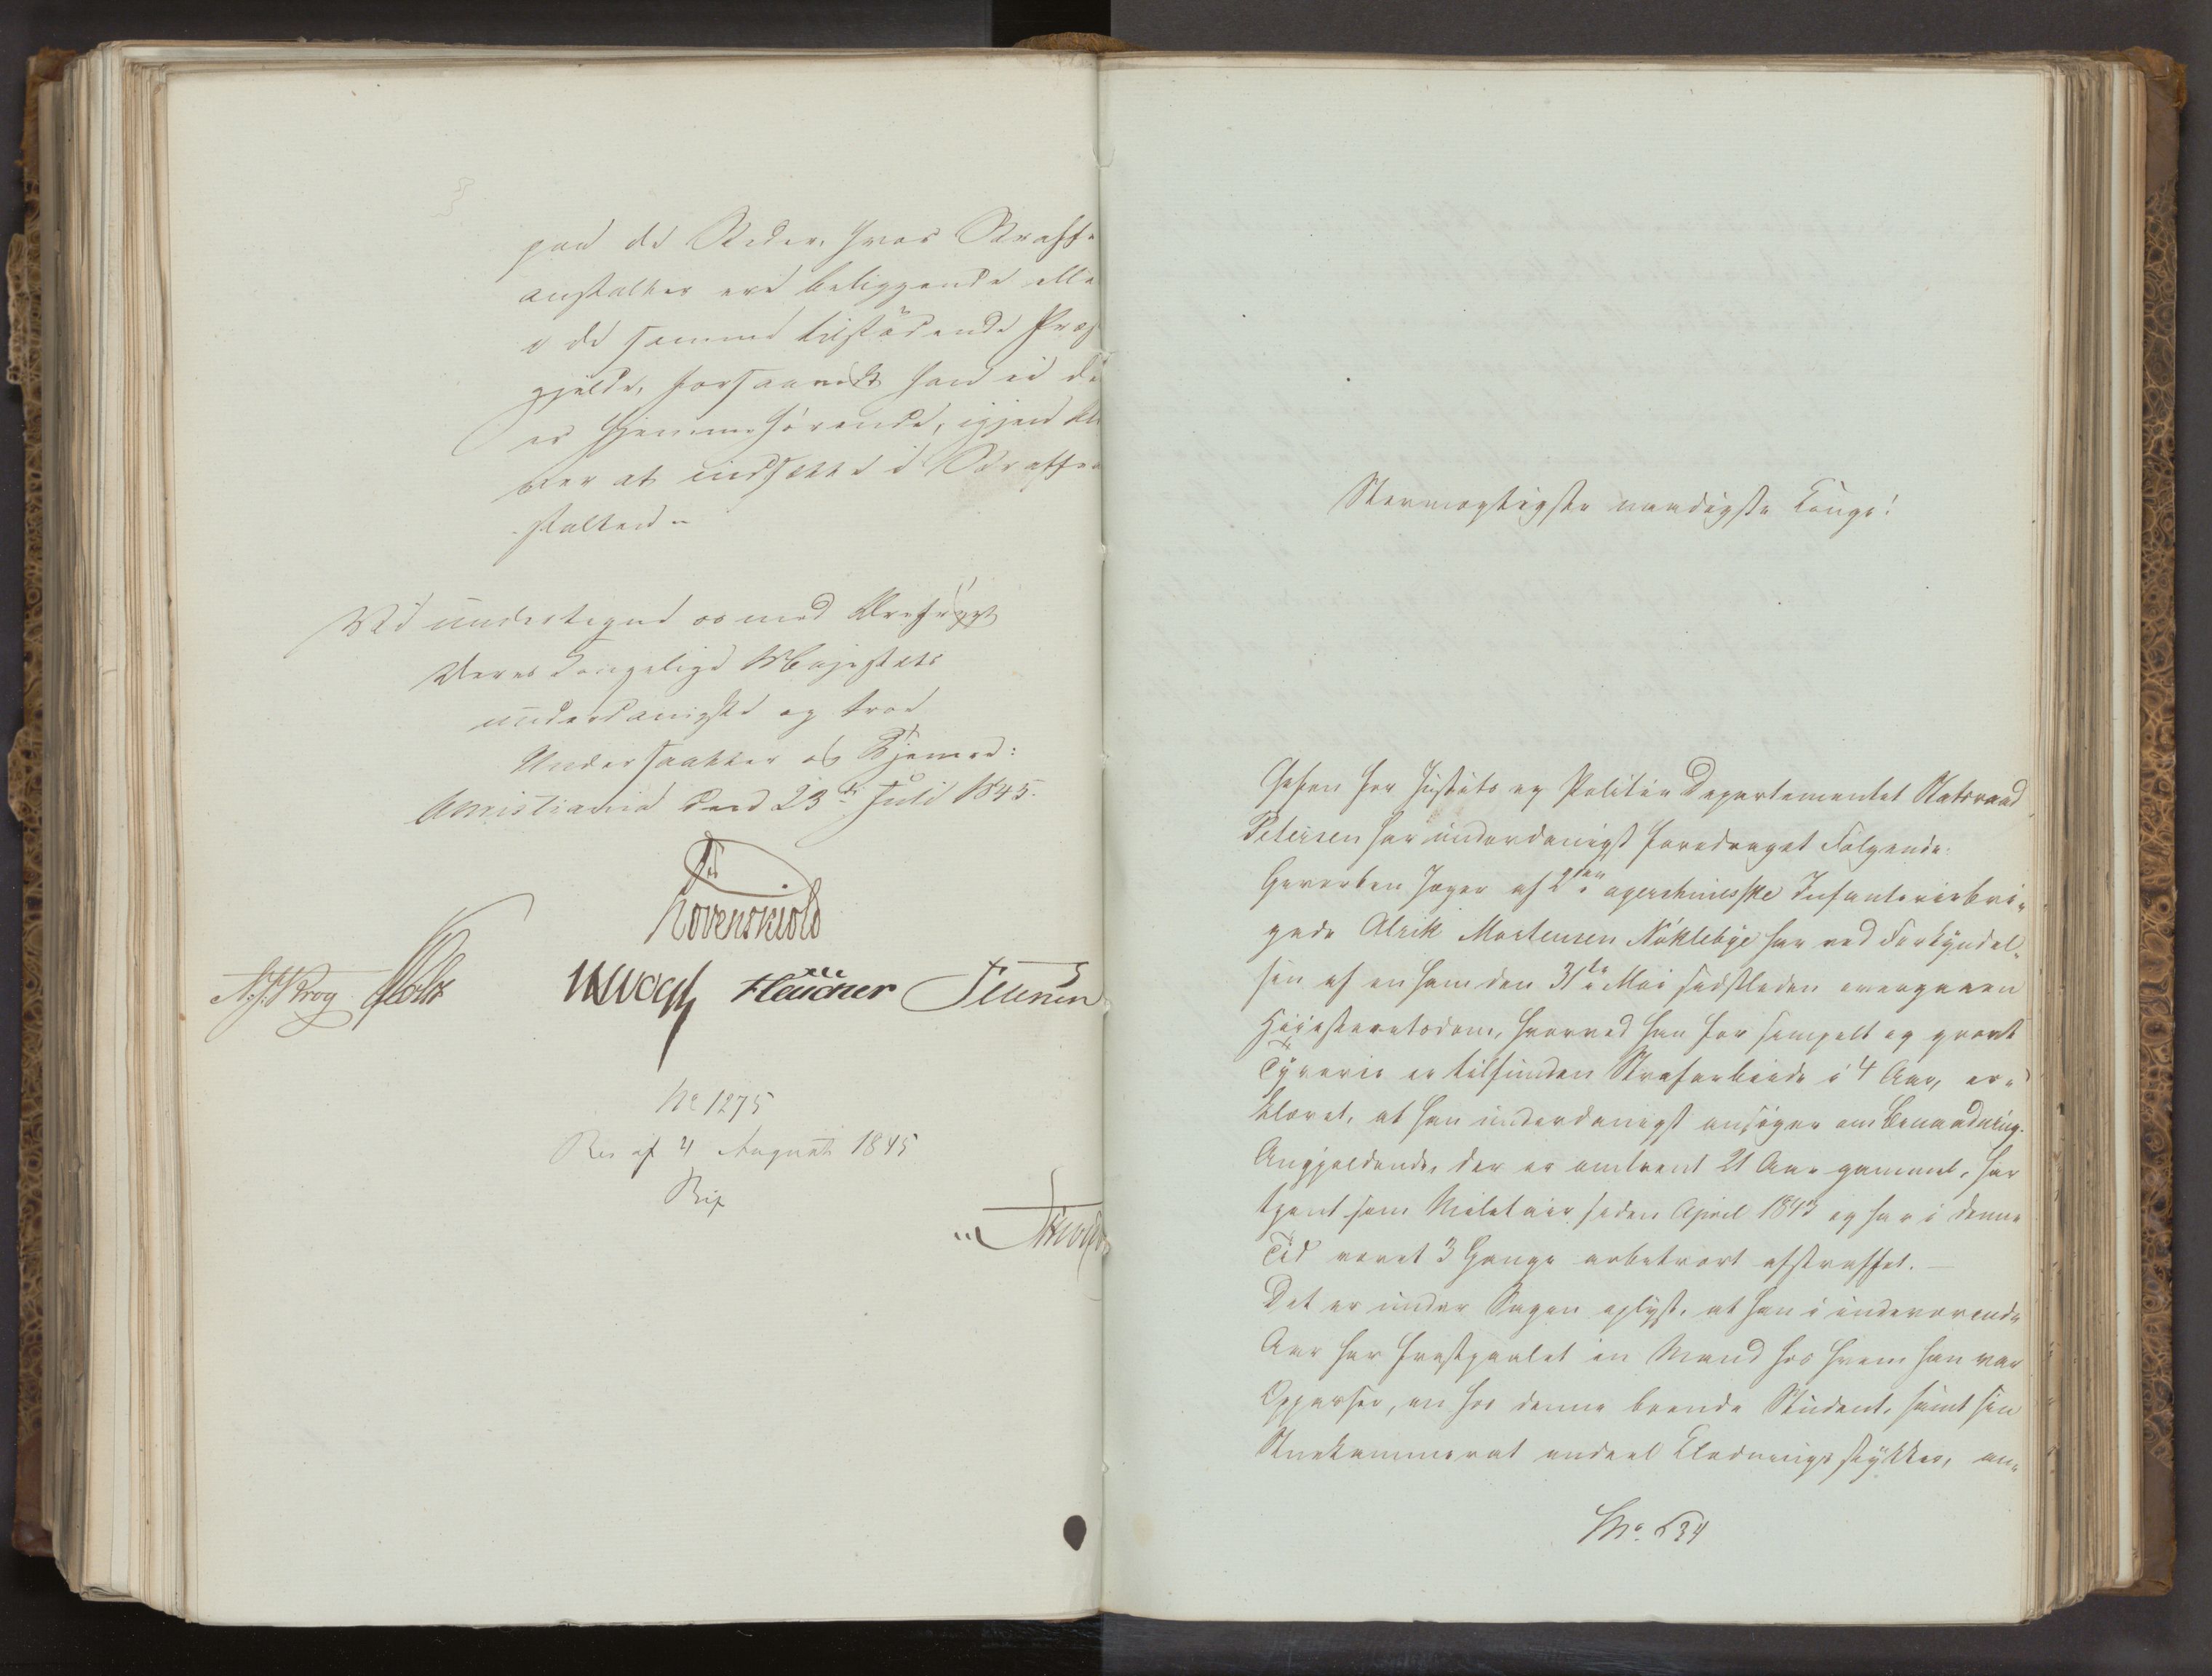 paa de Steder, hvor Straffe
anstalter ere beliggende elle
i de samme tilstødende Præste
gjelde, forsaavidt han ei de
er hjemmehørende, igjen bli
ver at indsætte i Straffean
stalten.
Vi undertegne os med Ærefrygt
Deres Kongelige Majestæts
underdanigste og troe
Undersaatter og Tjenere:
Christiania den 23de Juli 1845.
Løvenskiold
Krog Holst Vogt Petersen
No 1275
Res af 4 August 1845
Stormægtigste naadigste Konge!
Chefen for Justits og Politie Departementet Statsraad
Petersen har underdanigst foredraget Følgende:
Gevorben Jæger af 2den agershuusske Infanteriebri-
gade Alrik Mortensen Nöklebye har ved Forkyndel-
sen af en ham den 31te Mai sidstleden overgaaen
Høiesteretsdom, hvorved han for simpelt og grovt
Tyverie er tilfunden Strafarbeide i 4 Aar, er-
klæret, at han underdanigst ansøger om Benaadning.
Angjældende, der er omtrent 21 Aar gammel, har
tjent som Militair siden April 1843 og har i denne
Tid været 3 Gange arbitrært afstraffet. —
Det er under Sagen oplyst, at han i indeværende
Aar har frastjaalet en Mand hos hvem han var
Oppasser, en hos denne boende Student, samt sin
Stuekammerat endeel Klædningsstykker, an-
No. 634